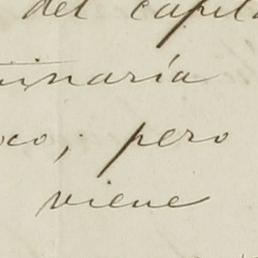 del capita
inaría
oco, pero
viene